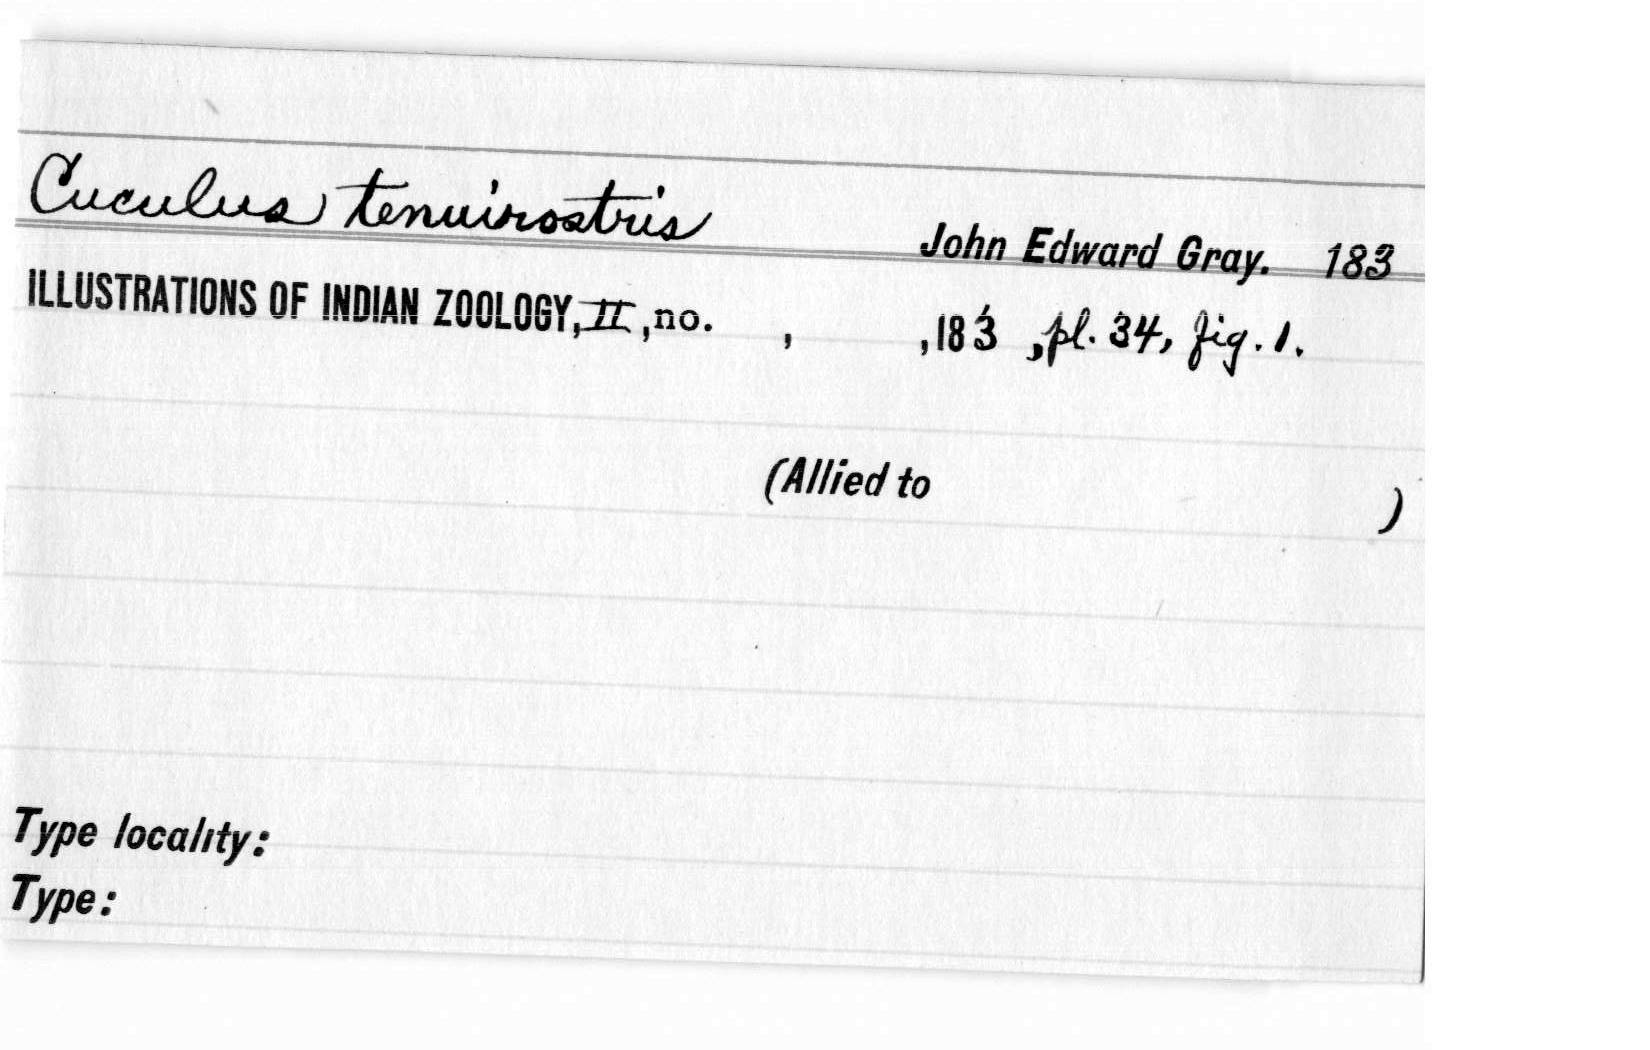 Cuculus tenuirostris
John Edward Gray. 183
ILLUSTRATIONS OF INDIAN ZOOLOGY, II, no. , ,183 , pl. 34, fig. 1.
(Allied to )
Type locality:
Type: